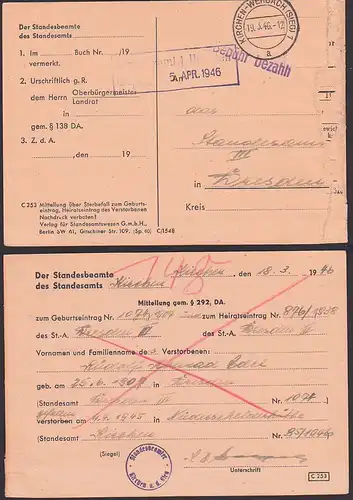 Der Standesbeamte
des Standesamts
KIRCHEN-WEHBACH (SIEG) 1
19.3.46.-12
a
Gebühr bezahlt
1. Im Buch Nr. /19
vermerkt.
2. Urschriftlich g. R.
dem Herrn Oberbürgermeister
Landrat
in
gem. § 138 DA.
3. Z. d. A.
, den 19
5. APR. 1946
das
Standesamt
III
in Dresden
Kreis
C 253 Mitteilung über Sterbefall zum Geburts-
eintrag, Heiratseintrag des Verstorbenen
Nachdruck verboten!
Verlag für Standesamtswesen G.m.b.H.,
Berlin SW 61, Gitschiner Str. 109. (Sp. 60) C/1548
Der Standesbeamte
des Standesamts Kirchen Kirchen, den 18. 3. 1946
Mitteilung gem. § 292, DA.
zum Geburtseintrag Nr. 1078/1907 zum Heiratseintrag Nr. 876/1938
des St.-A. Dresden III des St.-A. Dresden
Vornamen und Familienname des Verstorbenen:
Rudolf
geb. am 25.6.1907 in Dresden
(Standesamt Dresden III Nr. 1078)
verstorben am 4.4.1945 in Niederschelderhütte
(Standesamt Kirchen Nr. 85/1946)
(Siegel)
Standesbeamter
Unterschrift
C 253